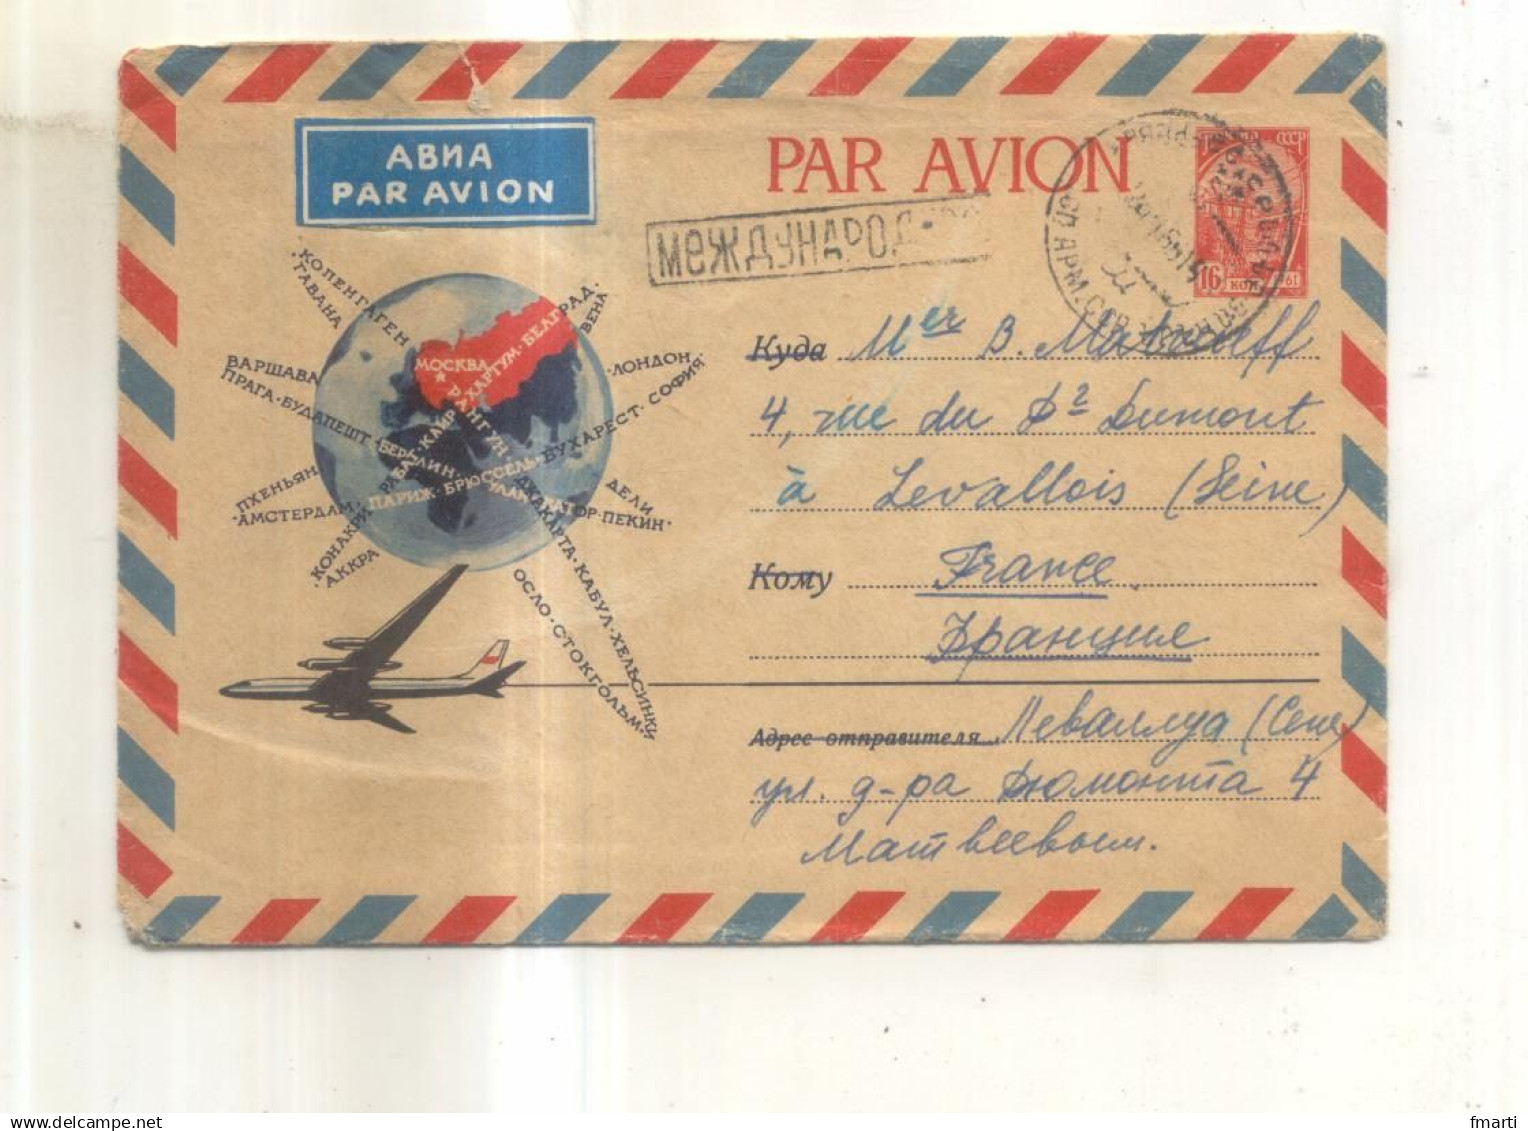 АВИА
PAR AVION
PAR AVION
МЕЖДУНАРОД
СССР
16
КОП
КОПЕНГАГЕН
ГАВАНА
БЕЛГРАД
ВЕНА
ВАРШАВА
МОСКВА
ХАРТУМ
ЛОНДОН
ПРАГА · БУДАПЕШТ
БЕРЛИН
БРЮССЕЛЬ
БУХАРЕСТ · СОФИЯ
РАБАТ · КАИР
РАНГУН
ПХЕНЬЯН
АМСТЕРДАМ
ПАРИЖ
УЛАН-БАТОР · ПЕКИН
ДЕЛИ
КОНАКРИ
АККРА
ДЖАКАРТА · КАБУЛ · ХЕЛЬСИНКИ
ОСЛО · СТОКГОЛЬМ
Куда Mer B. Matveeff
4, rue du Dr Dumont
à Levallois (Seine)
Кому France
Франция
Адрес отправителя Леваллуа (Сена)
ул. д-ра Дюмонта 4
Матвеевым.
delcampe.net
fmarti